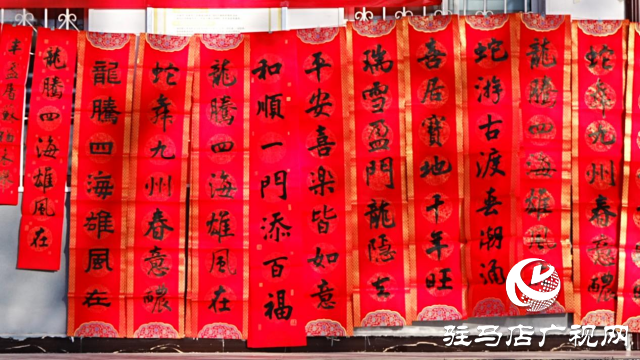 蛇舞九州春意醲
龍騰四海雄風
蛇游古渡春潮涌
喜居寶地千年旺
瑞雪盈門龍隱去
平安喜樂皆如意
和順一門添百福
龍騰四海雄風在
蛇舞九州春意醲
龍騰四海雄風在
龍騰四海雄風在
驻马店广视网